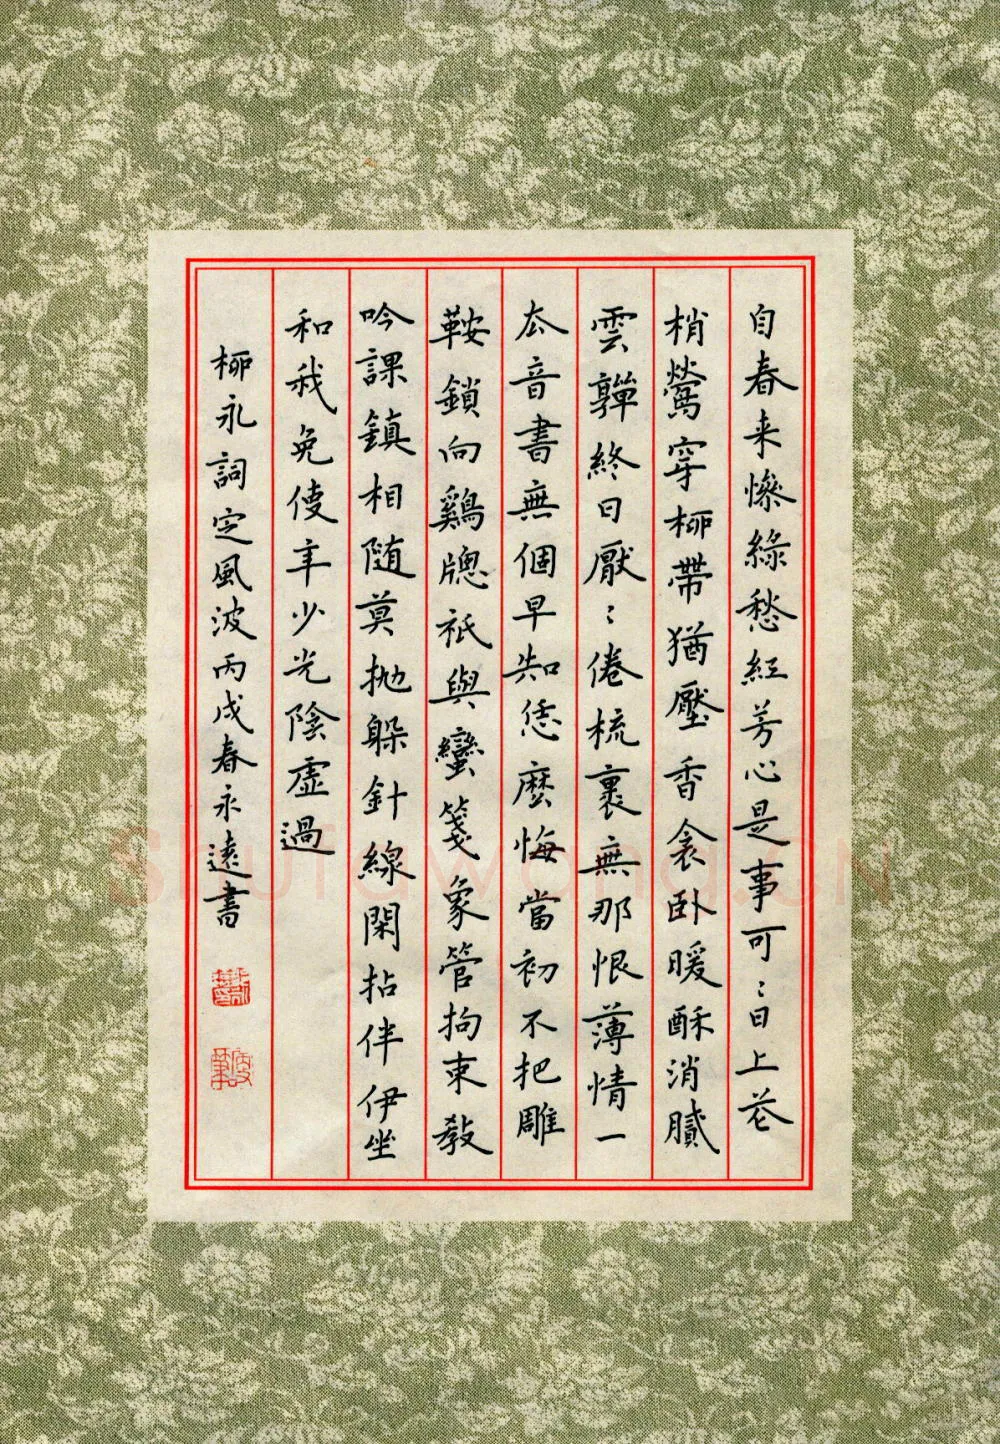 自春来慘綠愁紅芳心是事可〻日上花
梢鶯穿柳帶猶壓香衾卧暖酥消膩
雲嚲終日厭〻倦梳裹無那恨薄情一
去音書無個早知恁麽悔當初不把雕
鞍鎖向鷄牕祇與蠻箋象管拘束教
吟課鎮相随莫抛躲針線閑拈伴伊坐
和我免使年少光陰虛過
柳永詞定風波丙戌春永遠書
Shufawang.CN